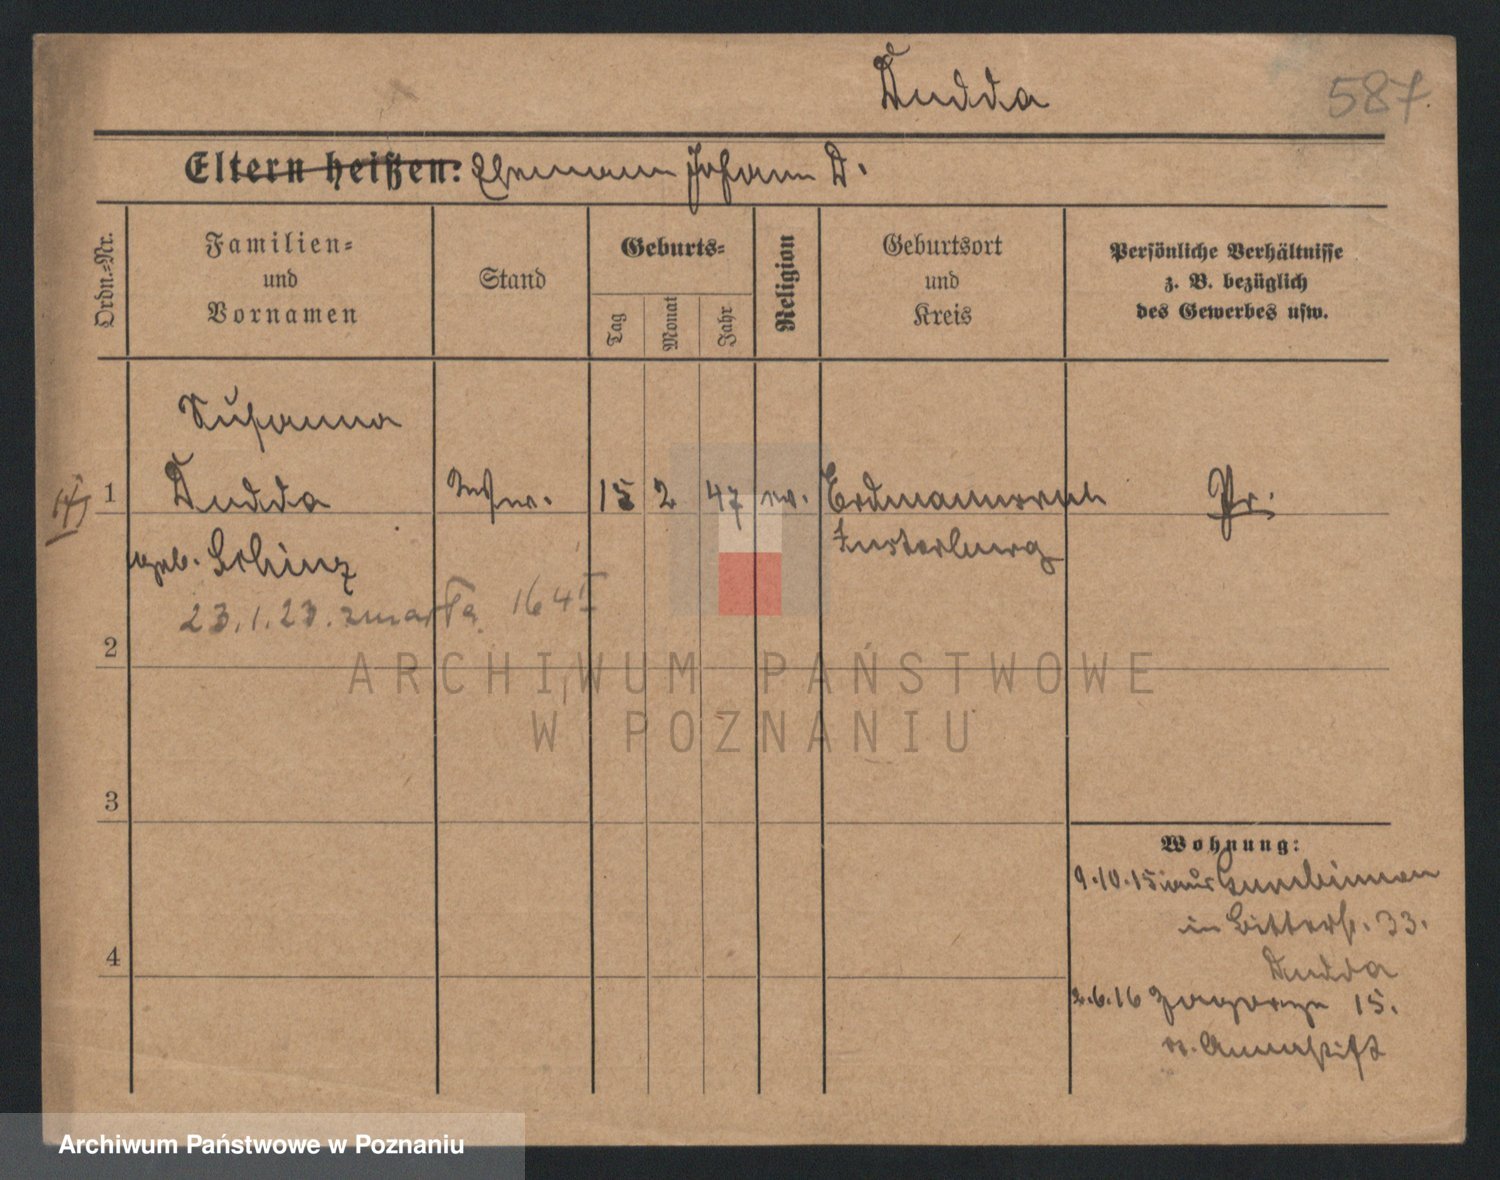 Dudda
587.
Eltern heißen: Ehemann Johann D.
Ordn.-Nr.
Familien-
und
Vornamen
Stand
Geburts-
Tag
Monat
Jahr
Religion
Geburtsort
und
Kreis
Persönliche Verhältnisse
z. B. bezüglich
des Gewerbes usw.
Susanna
1 Dudda Wwe. 15 2 47 ev. Erdmannsruh Pr.
geb. Schinz Insterburg
23.1.23. zmarła 164 I
2
ARCHIWUM PAŃSTWOWE
W POZNANIU
3
Wohnung:
9.10.15 aus Gumbinnen
in Bitterstr. 33.
4
Dudda
2.6.16 Zagorze 15.
b. Annastift
Archiwum Państwowe w Poznaniu